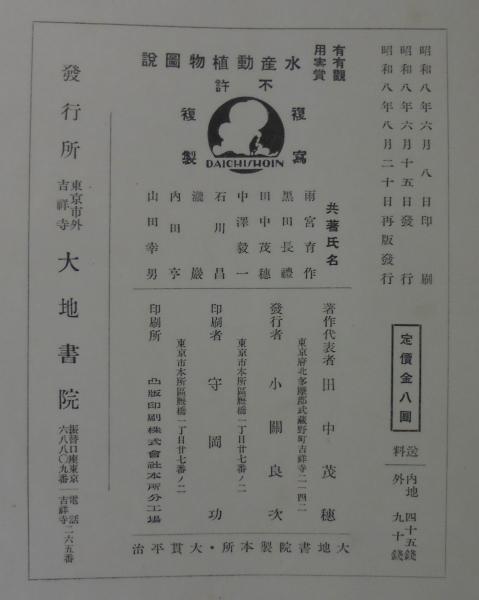 昭和八年六月八日印刷
昭和八年六月十五日發行
昭和八年八月二十日再版發行
定價金八圓
送料
内地 四十五錢
外 九十錢
觀賞
有害
有用
水産動植物圖說
不許
複寫
複製
DAICHISHOIN
共著氏名
雨宮育作
黑田長禮
田中茂穗
中澤毅一
石川昌
瀧巖
内田亨
山田幸男
著作代表者 田中茂穗
東京府北多摩郡武藏野町吉祥寺二一四二
發行者 小關良次
東京市本所區厩橋一丁目廿七番ノ二
印刷者 守岡功
東京市本所區厩橋一丁目廿七番ノ二
印刷所 凸版印刷株式會社本所分工場
大地書院製本所・大貫平治
發行所
東京市外
吉祥寺
大地書院
振替口座東京
六八八〇九番
電話
吉祥寺二六五番